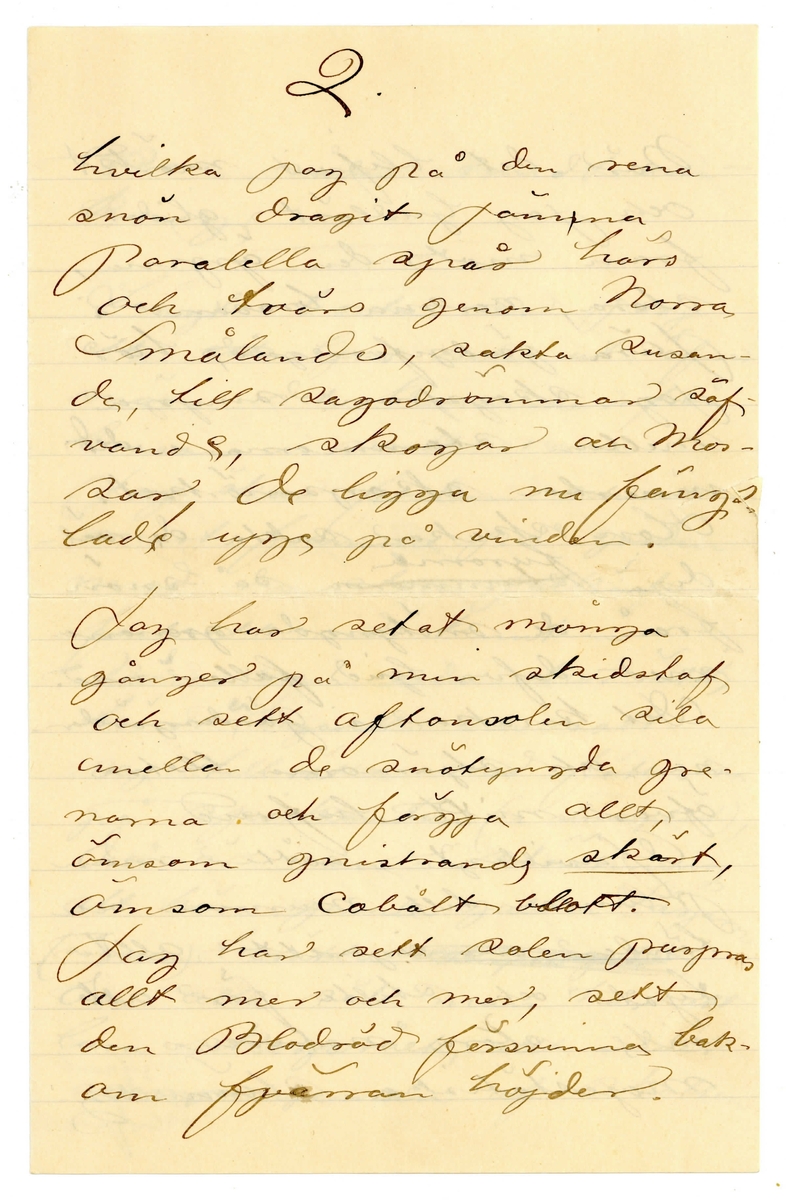 2.
hvilka jag på den rena
snön dragit jämna
Paralella spår härs
och tvärs genom Norra
Smålands, sakta susan-
de, till sagodrömmar söf-
vande, skogar och Mos-
sar, De ligga nu fängs-
lade uppe på vinden.
Jag har setat många
gånger på min skidstaf
och sett aftonsolen sila
mellan de snötyngda gre-
narna och färgga allt,
ömsom gnistrande skärt,
ömsom Cobålt blott.
Jag har sett solen purpras
allt mer och mer, sett
den Blodröd försvinna bak-
om fjärran höjder.